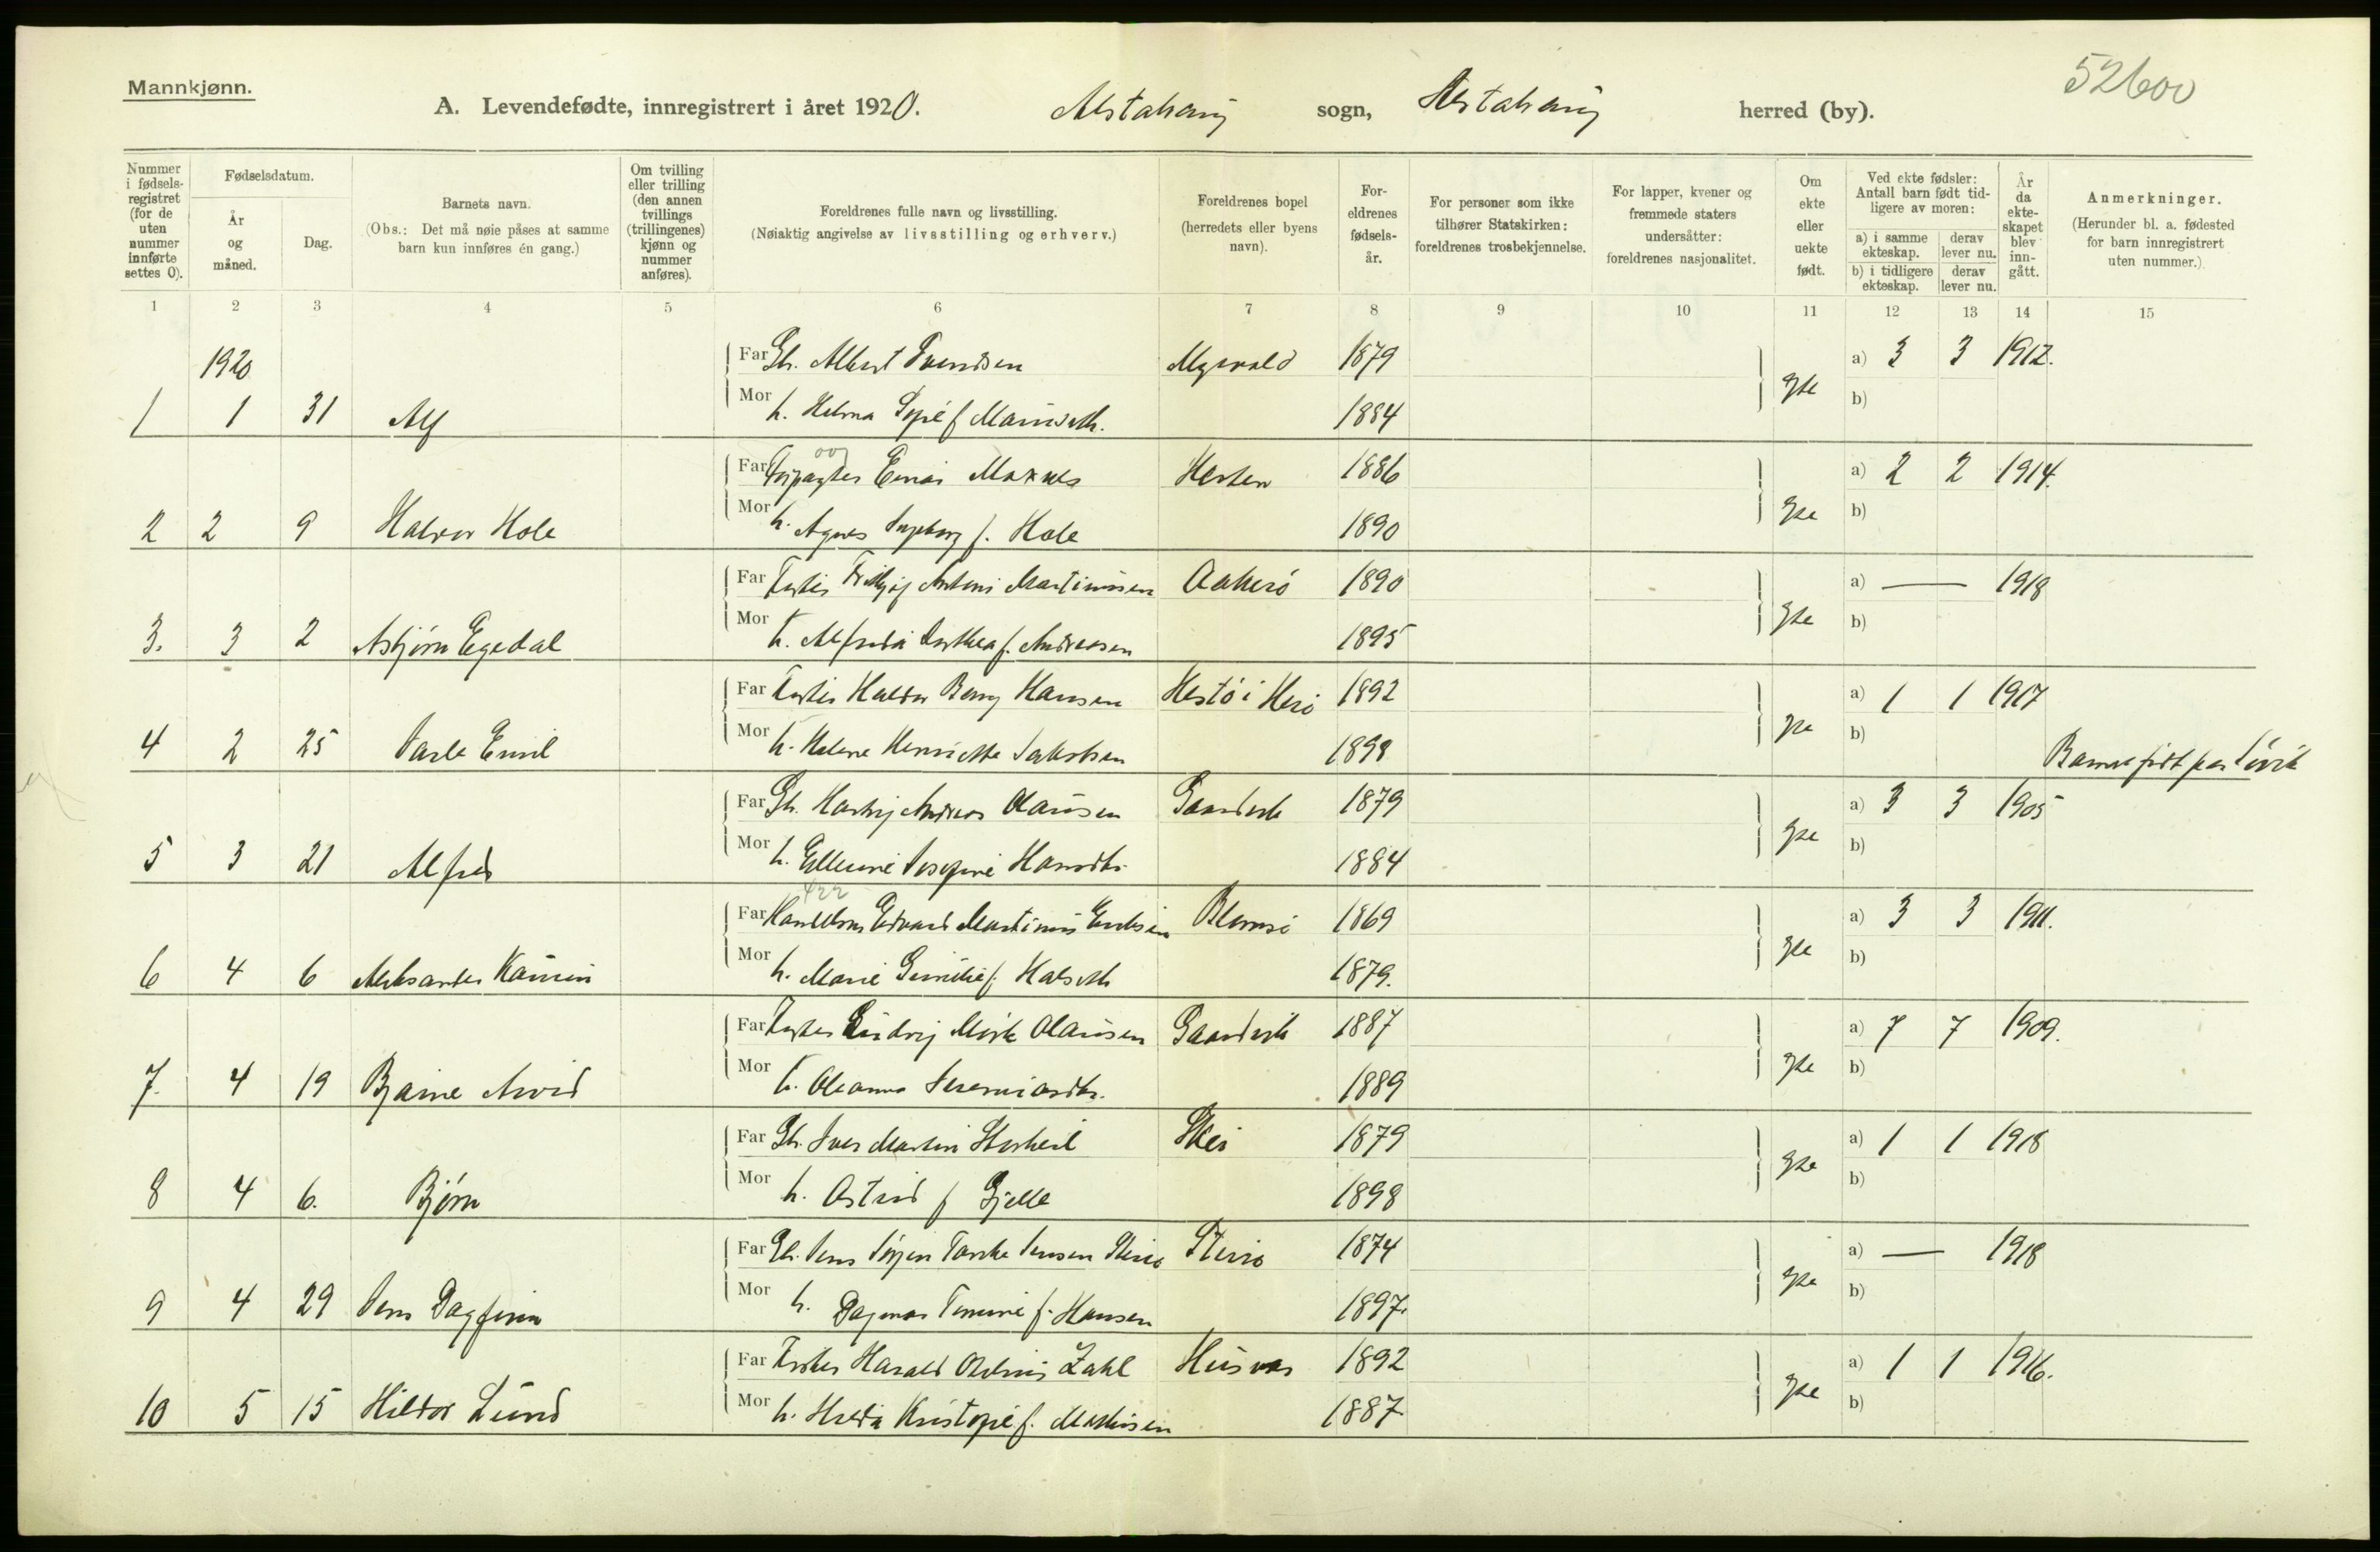 Mannkjønn.
52600
A. Levendefødte, innregistrert i året 1920. Alstahaug sogn, Alstahaug herred (by).
Nummer i fødsels-registret (for de uten nummer innførte settes 0).
Fødselsdatum.
År og måned.
Dag.
Barnets navn.
(Obs.: Det må nøie påses at samme barn kun innføres én gang.)
Om tvilling eller trilling (den annen tvillings (trillingenes) kjønn og nummer anføres).
Foreldrenes fulle navn og livsstilling.
(Nøiaktig angivelse av livsstilling og erhverv.)
Foreldrenes bopel
(herredets eller byens navn).
For-eldrenes fødsels-år.
For personer som ikke tilhører Statskirken: foreldrenes trosbekjennelse.
For lapper, kvener og fremmede staters undersåtter: foreldrenes nasjonalitet.
Om ekte eller uekte født.
Ved ekte fødsler: Antall barn født tid-ligere av moren:
a) i samme ekteskap.
derav lever nu.
b) i tidligere ekteskap.
derav lever nu.
År da ekte-skapet blev inn-gått.
Anmerkninger.
(Herunder bl. a. fødested for barn innregistrert uten nummer.)
1 2 3 4 5 6 7 8 9 10 11 12 13 14 15
1920
Far Gb. Albert Svendsen 1879 a) 3 3 1912.
1 1 31 Alf Mor h. Helma Sofie f 1884 b)
Far Forpagter Einar Maxnes Hesten 1886 a) 2 2 1914.
2 2 9 Halvor Hole Mor h. Agnes Ingeborg f. Hole 1890 b)
Far Fisker Fridtjof Antoni Martinussen Aakerö 1890 a) — 1918
3. 3 2 Asbjørn Egedal Mor h. Alfrida Dorthea f. Andreasen 1895 b)
Far Fisker Haldor Berg Hansen Hestö i Herö 1892 a) 1 1 1917
4 2 25 Jarle Emil Mor h. Helene Henriette Jakobsen 1898 b) Barnet født paa Søvik
Far Gb. Hartvig Andreas Olausen 1879 a) 3 3 1905
5 3 21 Alfred Mor h. Ellurine Josefine Hansdtr. 1884 b)
422
Far Edvard Martinus Eriksen Blomsö 1869 a) 3 3 1911.
6 4 6 Aleksander Mor h. Marie f. Halseth 1879. b)
Far Fisker Ludvig Mörk Olausen 1887 a) 7 7 1909.
7. 4 19 Bjarne Arvid Mor h. Oleanna Jeremiasdtr. 1889 b)
Far Gb. Iver Martin Storheil Skei 1879 a) 1 1 1918
8 4 6. Bjørn Mor h. Astrid f Gjelle 1898 b)
Far Gb. Jens Jörgen Jensen Steiro Steiro 1874 a) — 1918
9 4 29 Jens Dagfinn Mor h. Dagmar f. Hansen 1897. b)
Far Fisker Harald Zahl Husvær 1892 a) 1 1 1916.
10 5 15 Hildor Lund Mor h. Hulda Kristofie f. Mathisen 1887 b)